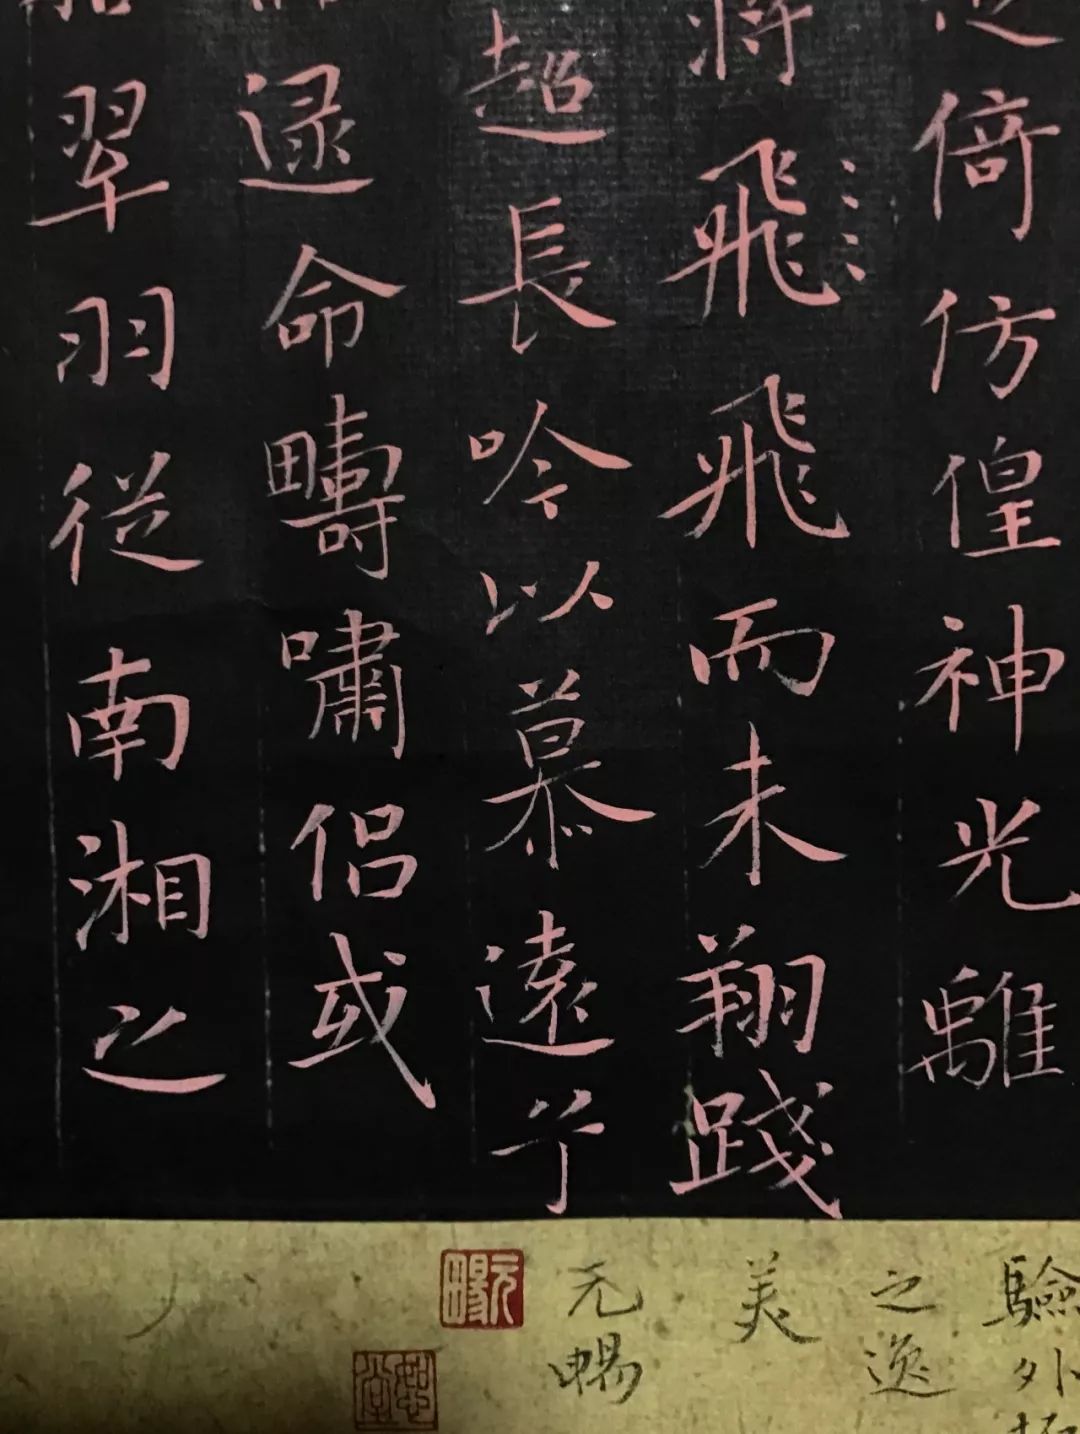 倚仿偟神光離
將飛飛而未翔踐
超長吟以慕遠兮
逯命疇嘯侣或
翠羽從南湘之
驗外
之逸
美
元暢
元暢